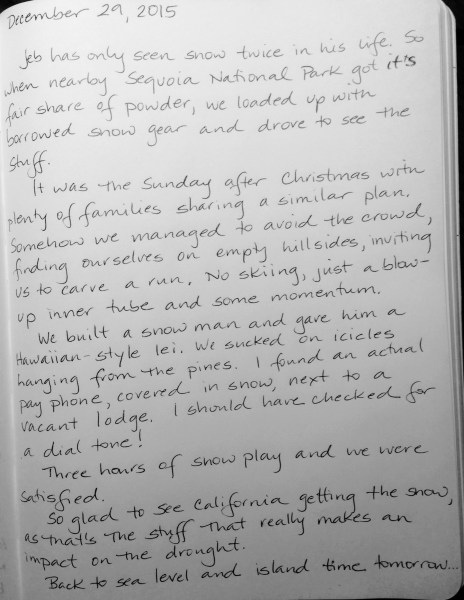 December 29, 2015
Jeb has only seen snow twice in his life. So
when nearby Sequoia National Park got it's
fair share of powder, we loaded up with
borrowed snow gear and drove to see the
stuff.
It was the Sunday after Christmas with
plenty of families sharing a similar plan.
Somehow we managed to avoid the crowd,
finding ourselves on empty hillsides, inviting
us to carve a run. No skiing, just a blow-
up inner tube and some momentum.
We built a snow man and gave him a
Hawaiian-style lei. We sucked on icicles
hanging from the pines. I found an actual
pay phone, covered in snow, next to a
vacant lodge. I should have checked for
a dial tone!
Three hours of snow play and we were
satisfied.
So glad to see California getting the snow,
as that's the stuff that really makes an
impact on the drought.
Back to sea level and island time tomorrow...